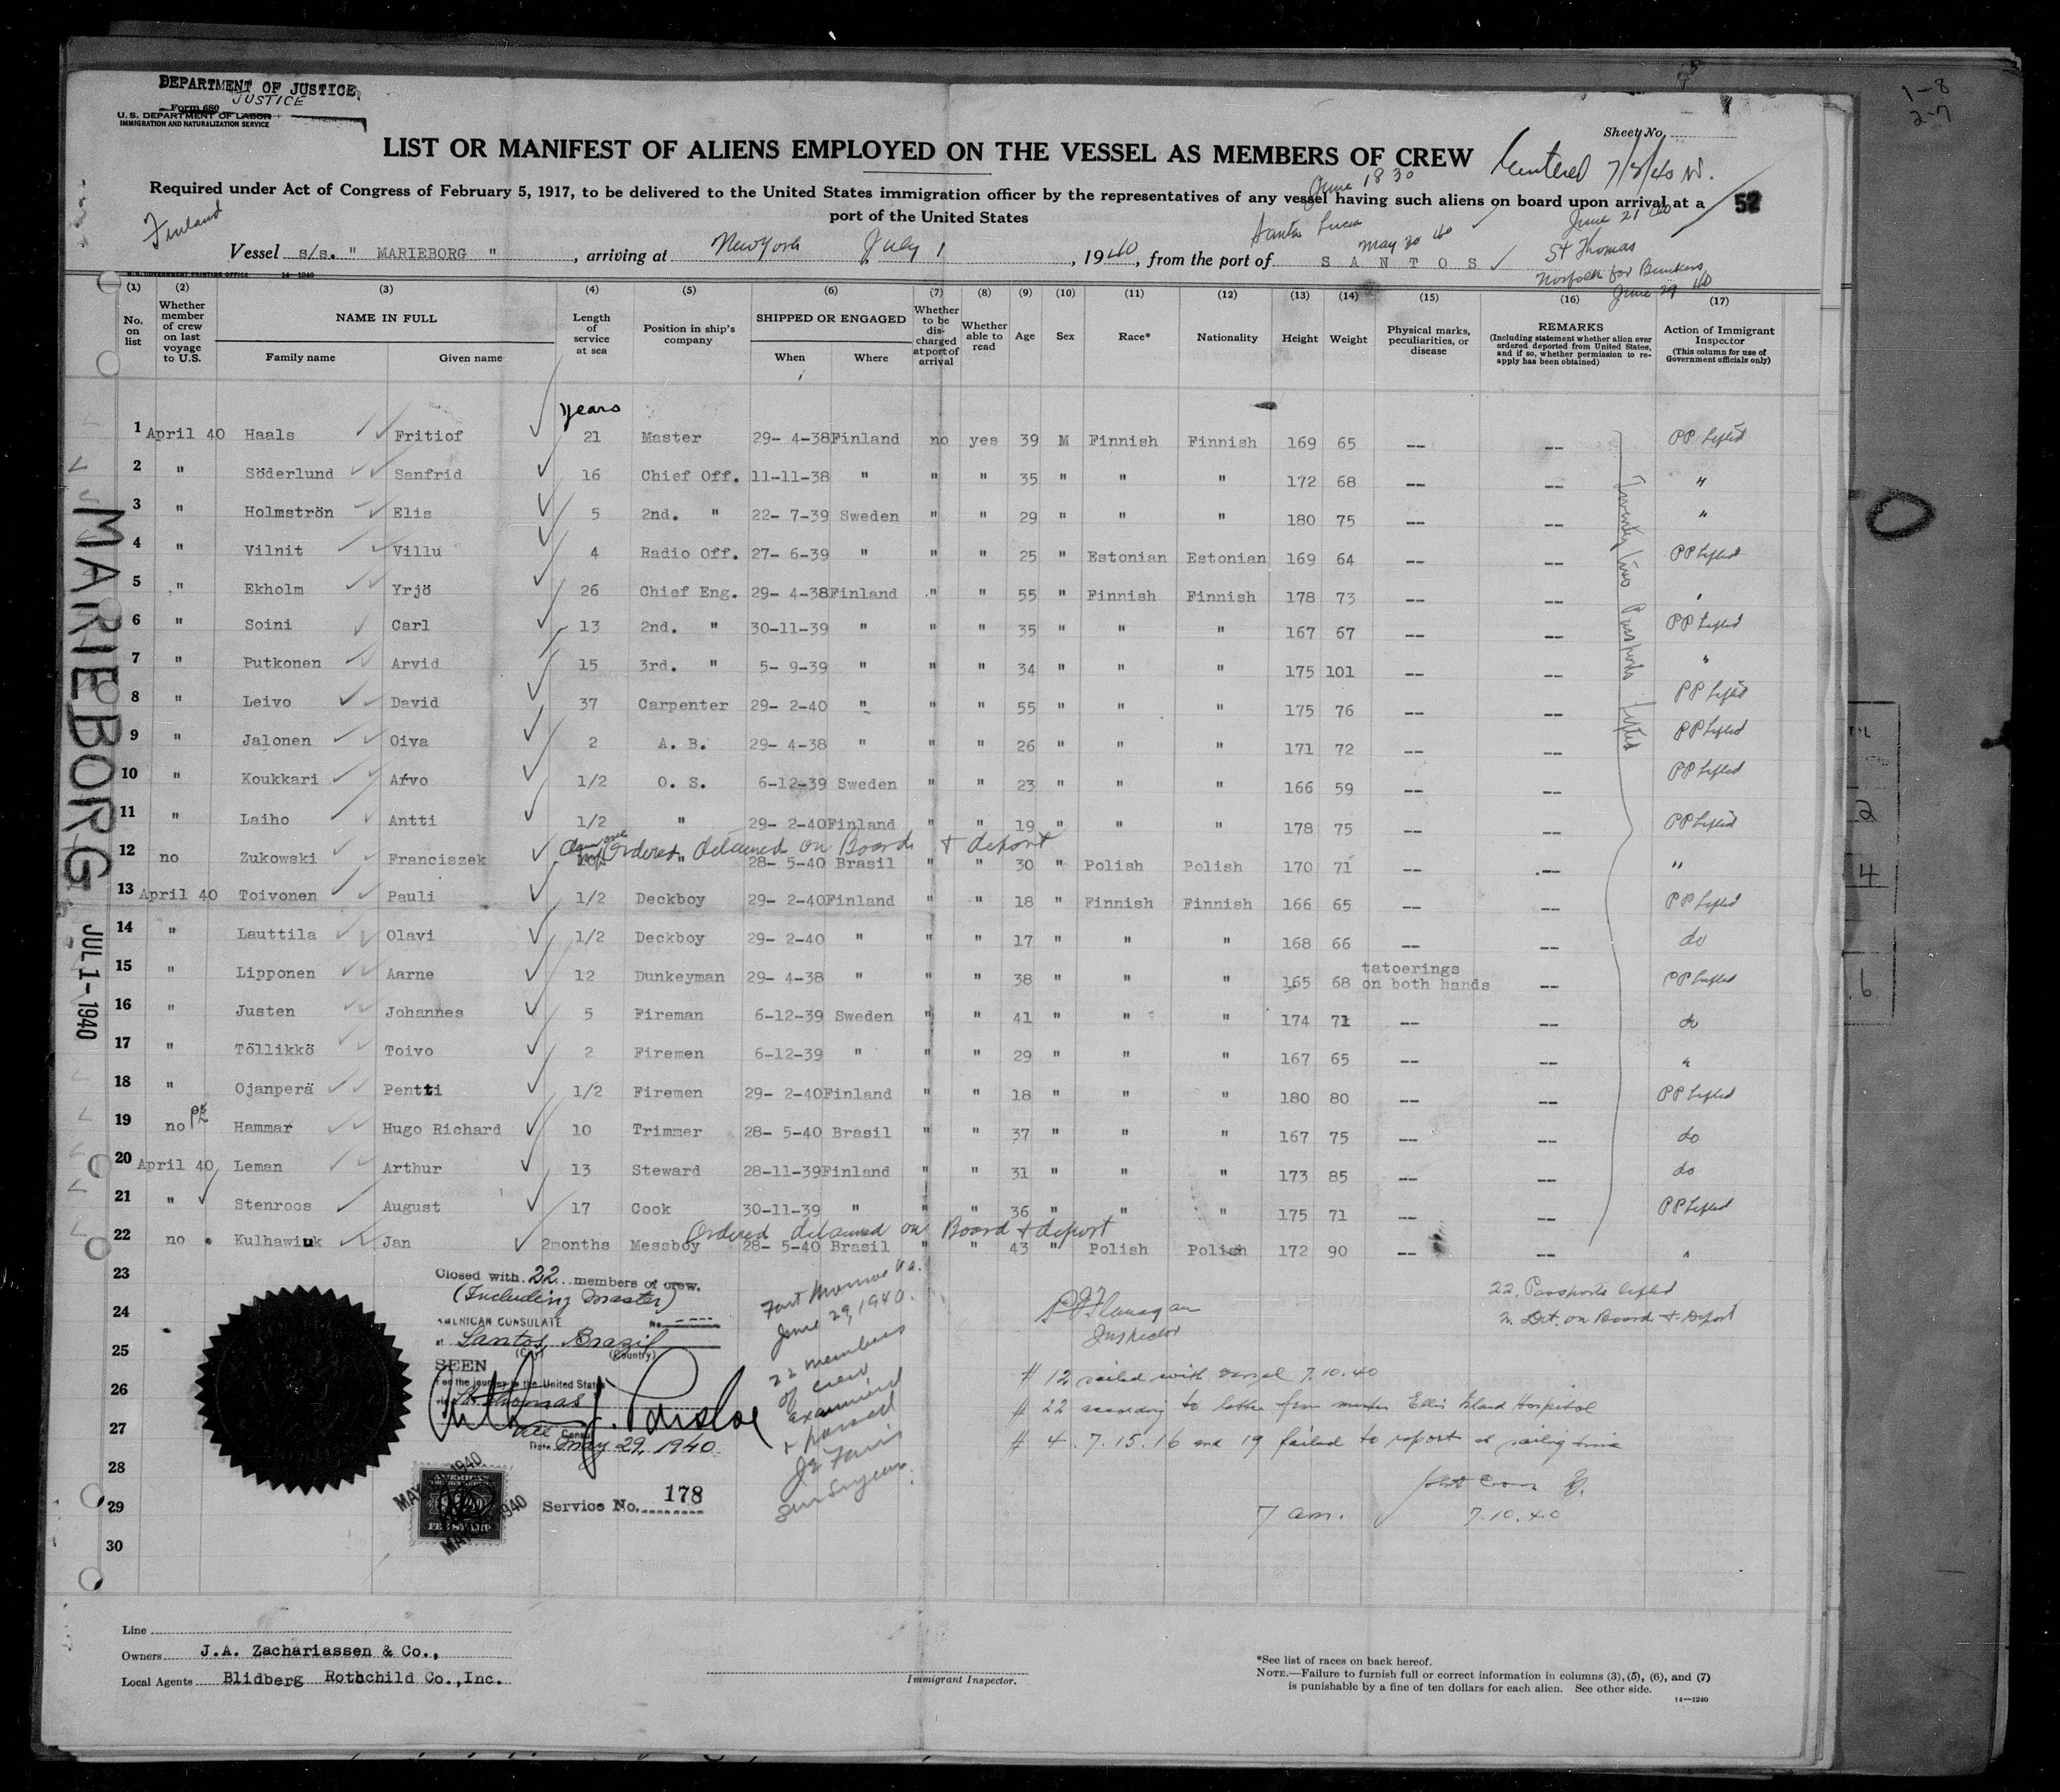 1-8
2-7
DEPARTMENT OF JUSTICE
JUSTICE
Form 680
U.S. DEPARTMENT OF LABOR
IMMIGRATION AND NATURALIZATION SERVICE
Sheet No.
LIST OR MANIFEST OF ALIENS EMPLOYED ON THE VESSEL AS MEMBERS OF CREW
7/3/40
Required under Act of Congress of February 5, 1917, to be delivered to the United States immigration officer by the representatives of any vessel having such aliens on board upon arrival at a
port of the United States
52
Finland
June 18 30
Santa Lucia
May 30 40
June 21 40
St Thomas
Norfolk for Bunkers
June 29 40
Vessel s/s. " MARIEBORG ", arriving at New York July 1, 1940, from the port of SANTOS
U.S. GOVERNMENT PRINTING OFFICE 14-1240
(1) (2) (3) (4) (5) (6) (7) (8) (9) (10) (11) (12) (13) (14) (15) (16) (17)
No. on list
Whether member of crew on last voyage to U.S.
NAME IN FULL
Family name Given name
Length of service at sea
Position in ship's company
SHIPPED OR ENGAGED
When Where
Whether to be discharged at port of arrival
Whether able to read
Age Sex Race* Nationality Height Weight
Physical marks, peculiarities, or disease
REMARKS
(Including statement whether alien ever ordered deported from United States, and if so, whether permission to reapply has been obtained)
Action of Immigrant Inspector
(This column for use of Government officials only)
years
1 April 40 Haals Fritiof 21 Master 29- 4-38 Finland no yes 39 M Finnish Finnish 169 65 -- -- PP Lifted
2 " Söderlund Sanfrid 16 Chief Off. 11-11-38 " " " 35 " " " 172 68 -- -- "
3 " Holmströn Elis 5 2nd. " 22- 7-39 Sweden " " 29 " " " 180 75 -- -- "
4 " Vilnit Villu 4 Radio Off. 27- 6-39 " " " 25 " Estonian Estonian 169 64 -- -- PP Lifted
5 " Ekholm Yrjö 26 Chief Eng. 29- 4-38 Finland " " 55 " Finnish Finnish 178 73 -- -- "
6 " Soini Carl 13 2nd. " 30-11-39 " " " 35 " " " 167 67 -- -- PP Lifted
7 " Putkonen Arvid 15 3rd. " 5- 9-39 " " " 34 " " " 175 101 -- -- "
8 " Leivo David 37 Carpenter 29- 2-40 " " " 55 " " " 175 76 -- -- PP Lifted
9 " Jalonen Oiva 2 A. B. 29- 4-38 " " " 26 " " " 171 72 -- -- PP Lifted
10 " Koukkari Arvo 1/2 O. S. 6-12-39 Sweden " " 23 " " " 166 59 -- -- PP Lifted
11 " Laiho Antti 1/2 " 29- 2-40 Finland " " 19 " " " 178 75 -- -- PP Lifted
Ordered detained on Board + deport
12 no Zukowski Franciszek " 28- 5-40 Brasil " " 30 " Polish Polish 170 71 -- -- "
13 April 40 Toivonen Pauli 1/2 Deckboy 29- 2-40 Finland " " 18 " Finnish Finnish 166 65 -- -- PP Lifted
14 " Lauttila Olavi 1/2 Deckboy 29- 2-40 " " " 17 " " " 168 66 -- -- do
15 " Lipponen Aarne 12 Dunkeyman 29- 4-38 " " " 38 " " " 165 68 tatoerings on both hands -- PP Lifted
16 " Justen Johannes 5 Fireman 6-12-39 Sweden " " 41 " " " 174 71 -- -- do
17 " Töllikkö Toivo 2 Firemen 6-12-39 " " " 29 " " " 167 65 -- -- "
18 " Ojanperä Pentti 1/2 Firemen 29- 2-40 Finland " " 18 " " " 180 80 -- -- PP Lifted
19 no Hammar Hugo Richard 10 Trimmer 28- 5-40 Brasil " " 37 " " " 167 75 -- -- do
20 April 40 Leman Arthur 13 Steward 28-11-39 Finland " " 31 " " " 173 85 -- -- do
21 " Stenroos August 17 Cook 30-11-39 " " " 36 " " " 175 71 -- -- PP Lifted
Ordered detained on Board + deport
22 no Kulhawiuk Jan 2months Messboy 28- 5-40 Brasil " " 43 " Polish Polish 172 90 -- -- "
23
24
25
26
27
28
29
30
Twenty two Passports Lifted
MARIEBORG
JUL 1-1940
Closed with 22 members of crew.
(Including Master)
AMERICAN CONSULATE No.
at Santos, Brazil
(City) (Country)
SEEN
For the journey to the United States
via St. Thomas
Vice Consul
Date May 29, 1940.
Service No. 178
Fort Monroe Va.
June 29, 1940.
22 members
of crew
Examined
+ passed
Surgeon
Flanagan
Inspector
22 Passports lifted
2. Det. on Board + Deport
# 12 sailed with vessel 7.10.40
# 22 according to letter from master Ellis Island Hospital
# 4. 7. 15. 16 and 19 failed to report at sailing time
7 am.
7.10.40
Line
Owners J.A. Zachariassen & Co.,
Local Agents Blidberg Rothchild Co.,Inc.
Immigrant Inspector.
*See list of races on back hereof.
NOTE.—Failure to furnish full or correct information in columns (3), (5), (6), and (7)
is punishable by a fine of ten dollars for each alien. See other side.
14—1240